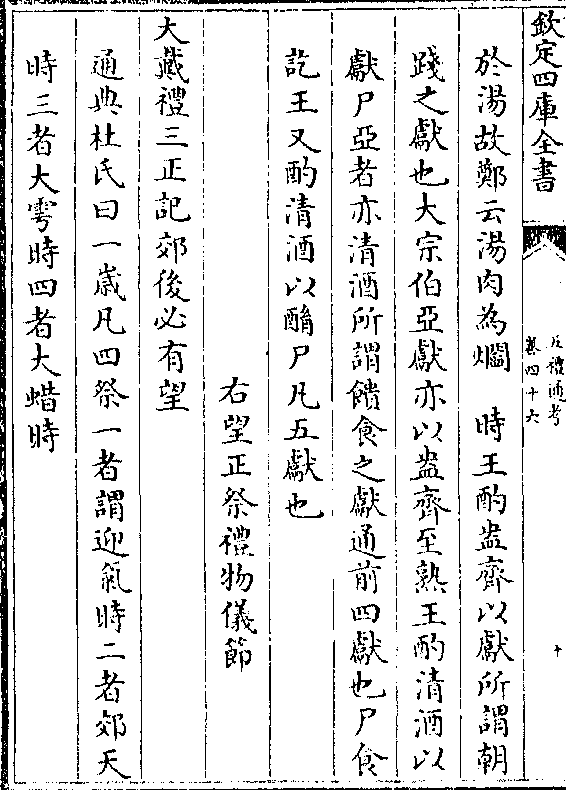 欽定四庫全書
五禮通考
卷四十六
十
於湯故鄭云湯肉為爓　時王酌盎齊以獻所謂朝
踐之獻也大宗伯亞獻亦以盎齊至熟王酌清酒以
獻尸亞者亦清酒所謂饋食之獻通前四獻也尸食
訖王又酌清酒以酳尸凡五獻也
右望正祭禮物儀節
大戴禮三正記郊後必有望
通典杜氏曰一歲凡四祭一者謂迎氣時二者郊天
時三者大雩時四者大蜡時